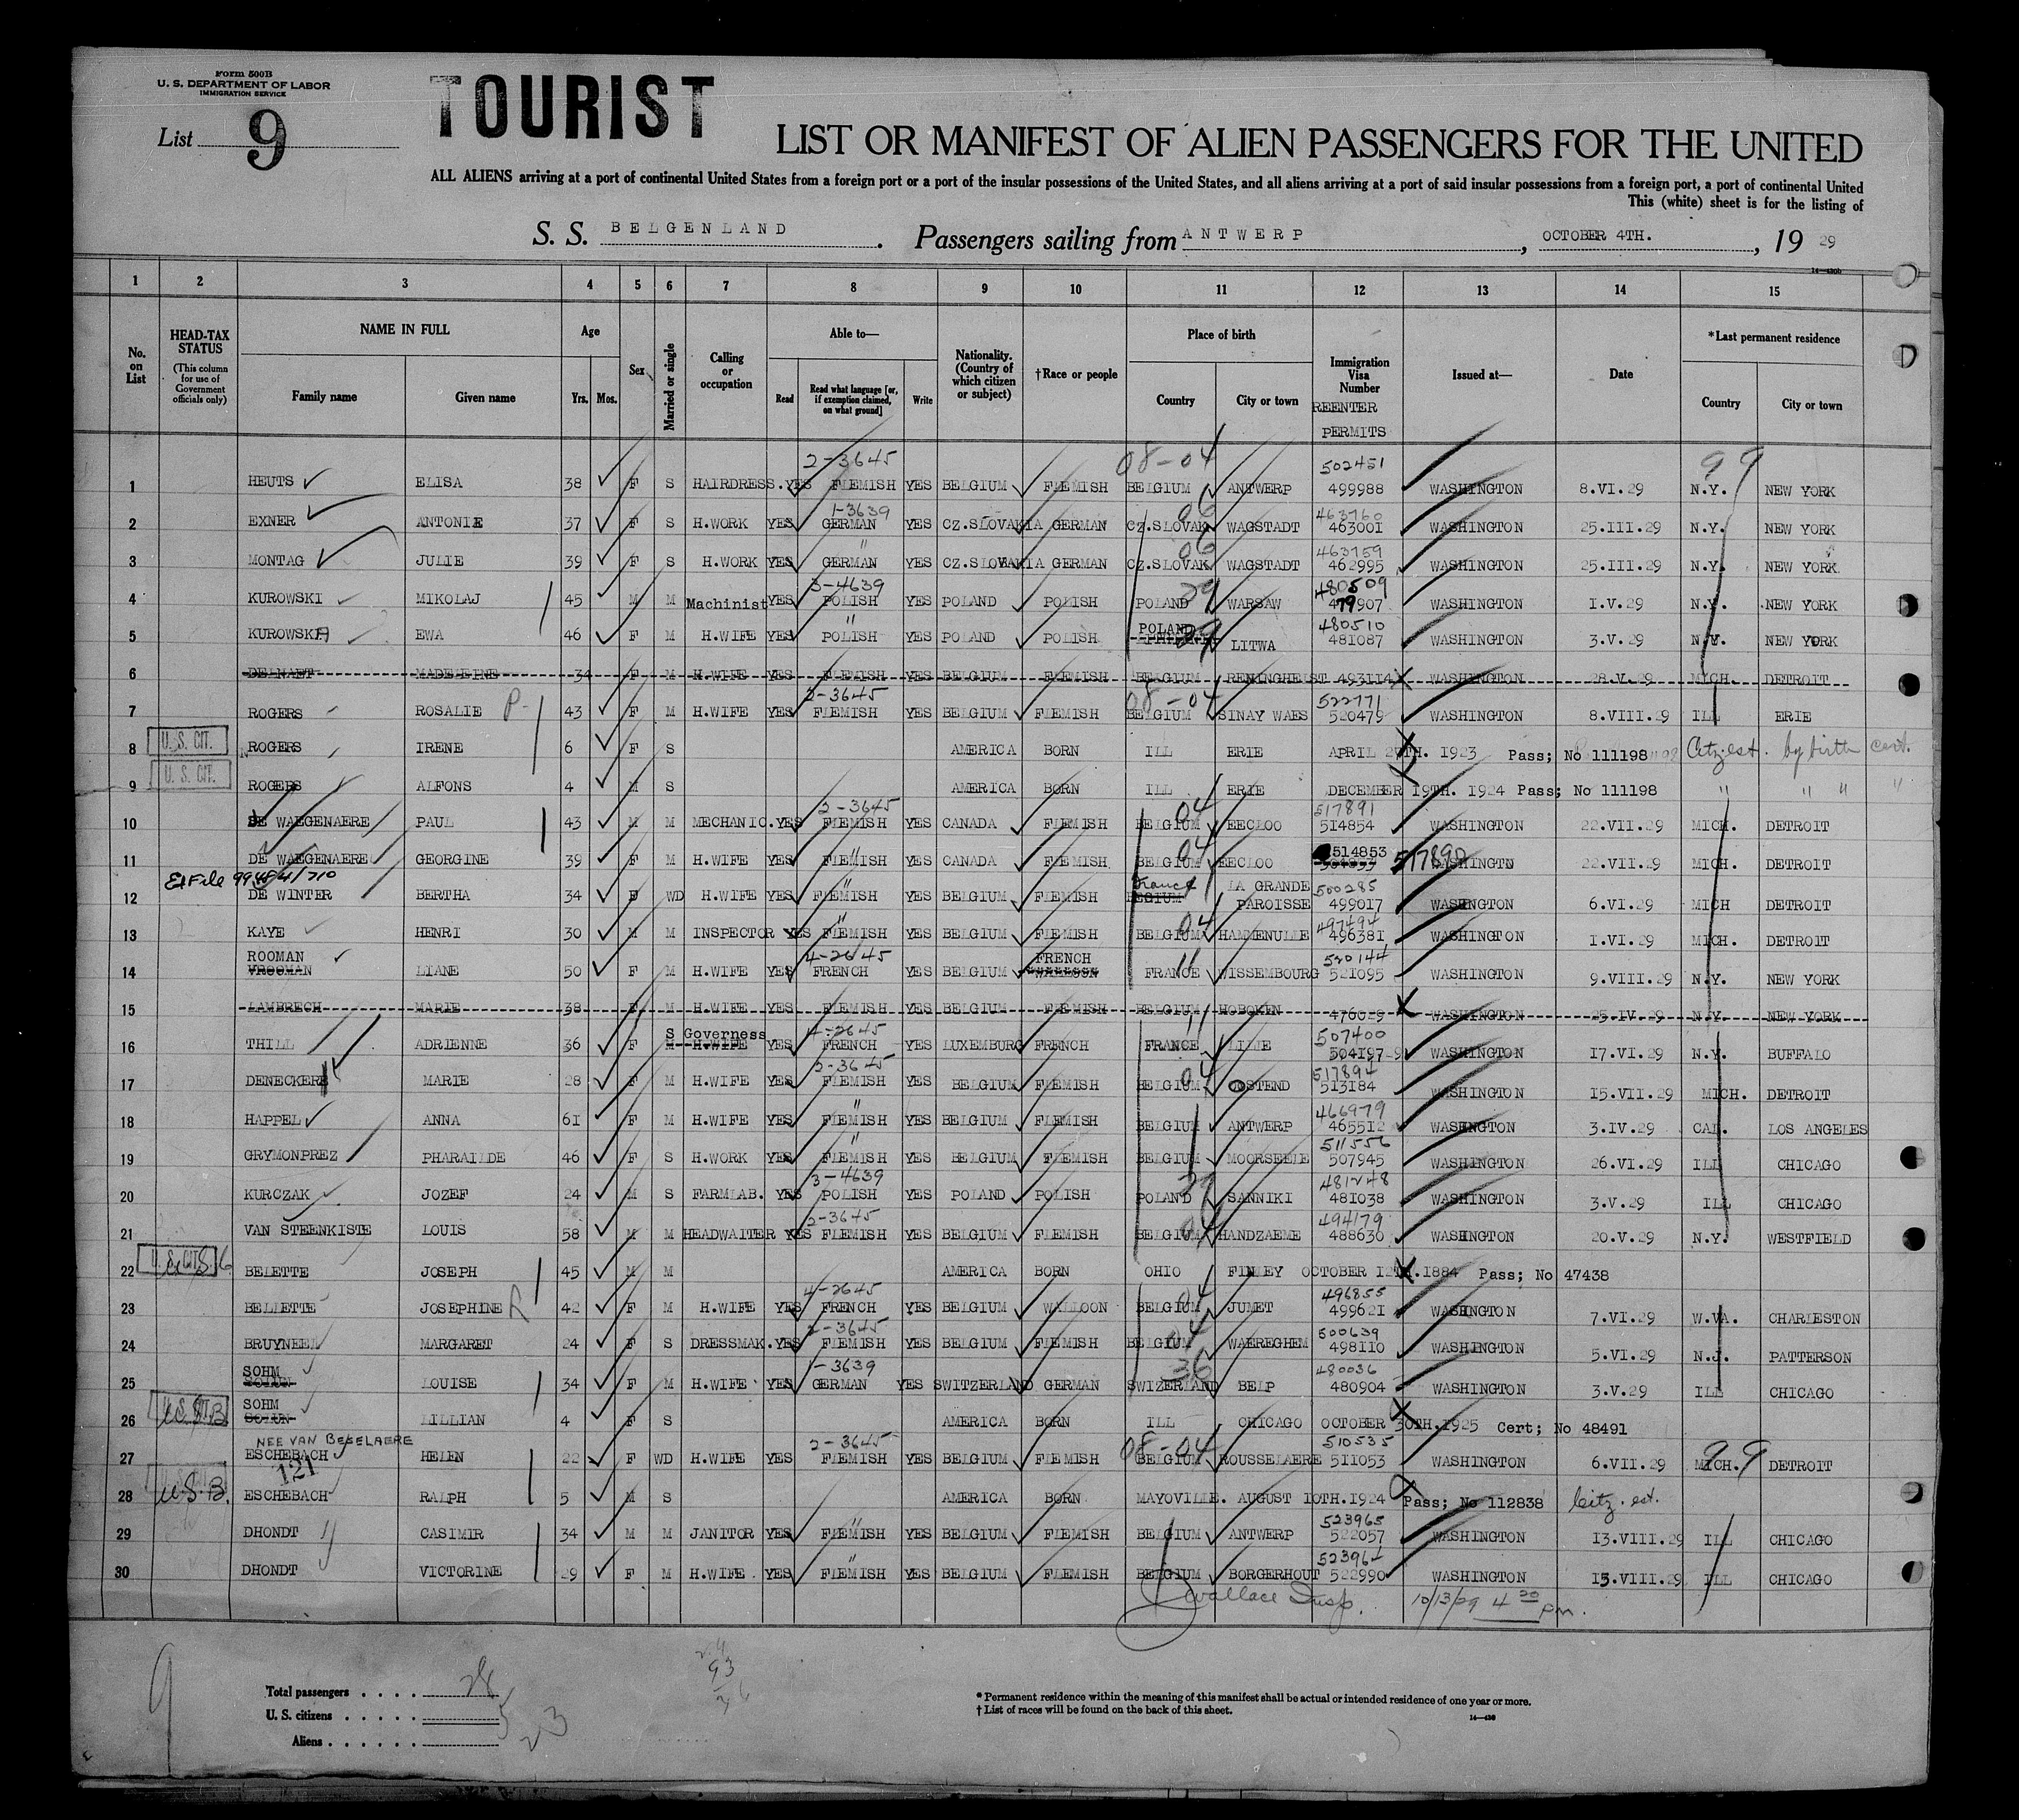 Form 500B
U. S. DEPARTMENT OF LABOR
IMMIGRATION SERVICE
List 9
TOURIST
LIST OR MANIFEST OF ALIEN PASSENGERS FOR THE UNITED
ALL ALIENS arriving at a port of continental United States from a foreign port or a port of the insular possessions of the United States, and all aliens arriving at a port of said insular possessions from a foreign port, a port of continental United
This (white) sheet is for the listing of
S. S. BELGENLAND. Passengers sailing from ANTWERP, OCTOBER 4TH., 19 29
14—430b
1 2 3 4 5 6 7 8 9 10 11 12 13 14 15
No. on List
HEAD-TAX STATUS (This column for use of Government officials only)
NAME IN FULL Family name Given name
Age Yrs. Mos.
Sex
Married or single
Calling or occupation
Able to— Read Read what language [or, if exemption claimed, on what ground] Write
Nationality. (Country of which citizen or subject)
†Race or people
Place of birth Country City or town
Immigration Visa Number REENTER PERMITS
Issued at—
Date
*Last permanent residence Country City or town
2-3645 08-04 502451 99
1 HEUTS ELISA 38 F S HAIRDRESS. YES FLEMISH YES BELGIUM FLEMISH BELGIUM ANTWERP 499988 WASHINGTON 8.VI.29 N.Y. NEW YORK
1-3639 06 463760
2 EXNER ANTONIE 37 F S H.WORK YES GERMAN YES CZ.SLOVAKIA GERMAN CZ.SLOVAK WAGSTADT 463001 WASHINGTON 25.III.29 N.Y. NEW YORK
" 06 463759
3 MONTAG JULIE 39 F S H.WORK YES GERMAN YES CZ.SLOVAKIA GERMAN CZ.SLOVAK WAGSTADT 462995 WASHINGTON 25.III.29 N.Y. NEW YORK
3-4639 29 480509
4 KUROWSKI MIKOLAJ 45 M M Machinist YES POLISH YES POLAND POLISH POLAND WARSAW 479907 WASHINGTON I.V.29 N.Y. NEW YORK
" POLAND 29 480510
5 KUROWSKA EWA 46 F M H.WIFE YES POLISH YES POLAND POLISH LITWA 481087 WASHINGTON 3.V.29 N.Y. NEW YORK
6 DELHAET MADELEINE 34 F M H.WIFE YES FLEMISH YES BELGIUM FLEMISH BELGIUM RENINGHELST 493114 WASHINGTON 28.V.29 MICH. DETROIT
2-3645 08-04 522771
7 ROGERS ROSALIE 43 F M H.WIFE YES FLEMISH YES BELGIUM FLEMISH BELGIUM SINAY WAES 520479 WASHINGTON 8.VIII.29 ILL ERIE
8 U. S. CIT. ROGERS IRENE 6 F S AMERICA BORN ILL ERIE APRIL TH. 1923 Pass; No 111198 Citz. est. by birth cert.
9 U. S. CIT. ROGERS ALFONS 4 M S AMERICA BORN ILL ERIE DECEMBER 19TH. 1924 Pass; No 111198 " " " "
2-3645 04 517891
10 DE WAEGENAERE PAUL 43 M M MECHANIC. YES FLEMISH YES CANADA FLEMISH BELGIUM EECLOO 514854 WASHINGTON 22.VII.29 MICH. DETROIT
" 04 514853 517890
11 DE WAEGENAERE GEORGINE 39 F M H.WIFE YES FLEMISH YES CANADA FLEMISH BELGIUM EECLOO WASHINGTN 22.VII.29 MICH. DETROIT
" France LA GRANDE 500285
12 DE WINTER BERTHA 34 F WD H.WIFE YES FLEMISH YES BELGIUM FLEMISH BEGIUM PAROISSE 499017 WASHINGTON 6.VI.29 MICH DETROIT
" 04 497494
13 KAYE HENRI 30 M M INSPECTOR YES FLEMISH YES BELGIUM FLEMISH BELGIUM HAMMENULLE 496381 WASHINGTON I.VI.29 MICH. DETROIT
ROOMAN 4-2645 FRENCH 11 520144
14 VROOMAN LIANE 50 F M H.WIFE YES FRENCH YES BELGIUM WALLOON FRANCE WISSEMBOURG 521095 WASHINGTON 9.VIII.29 N.Y. NEW YORK
15 LAMBRECH MARIE 38 F M H.WIFE YES FLEMISH YES BELGIUM FLEMISH BELGIUM HOBOKEN 476029 WASHINGTON 25.IV.29 N.Y. NEW YORK
S Governess 4-2645 11 507400
16 THILL ADRIENNE 36 F M H.WIFE YES FRENCH YES LUXEMBURG FRENCH FRANCE LILLE 504197 WASHINGTON 17.VI.29 N.Y. BUFFALO
2-3645 04 517894
17 DENECKERE MARIE 28 F M H.WIFE YES FLEMISH YES BELGIUM FLEMISH BELGIUM OOSTEND 513184 WASHINGTON 15.VII.29 MICH. DETROIT
" 466979
18 HAPPEL ANNA 61 F M H.WIFE YES FLEMISH YES BELGIUM FLEMISH BELGIUM ANTWERP 465512 WASHINGTON 3.IV.29 CAL. LOS ANGELES
" 511556
19 GRYMONPREZ PHARAILDE 46 F S H.WORK YES FLEMISH YES BELGIUM FLEMISH BELGIUM MOORSEELE 507945 WASHINGTON 26.VI.29 ILL CHICAGO
3-4639 29 481248
20 KURCZAK JOZEF 24 M S FARMLAB. YES POLISH YES POLAND POLISH POLAND SANNIKI 481038 WASHINGTON 3.V.29 ILL CHICAGO
2-3645 04 494179
21 VAN STEENKISTE LOUIS 58 M M HEADWAITER YES FLEMISH YES BELGIUM FLEMISH BELGIUM HANDZAEME 488630 WASHINGTON 20.V.29 N.Y. WESTFIELD
22 U. S. CIT. BELETTE JOSEPH 45 M M AMERICA BORN OHIO FINLEY OCTOBER TH.1884 Pass; No 47438
4-2645 04 496855
23 BELLETTE JOSEPHINE 42 F M H.WIFE YES FRENCH YES BELGIUM WALLOON BELGIUM JUMET 499621 WASHINGTON 7.VI.29 W.VA. CHARLESTON
2-3645 04 500639
24 BRUYNEEL MARGARET 24 F S DRESSMAK. YES FLEMISH YES BELGIUM FLEMISH BELGIUM WAEREGHEM 498110 WASHINGTON 5.VI.29 N.J. PATTERSON
SOHM 1-3639 36 480036
25 LOUISE 34 F M H.WIFE YES GERMAN YES SWITZERLAND GERMAN SWIZERLAND BELP 480904 WASHINGTON 3.V.29 ILL CHICAGO
SOHM
26 LILLIAN 4 F S AMERICA BORN ILL CHICAGO OCTOBER 30TH.1925 Cert; No 48491
NEE VAN BESELAERE 2-3645 08-04 510535 99
27 ESCHEBACH HELEN 22 F WD H.WIFE YES FLEMISH YES BELGIUM FLEMISH BELGIUM ROUSSELAERE 511053 WASHINGTON 6.VII.29 MICH. DETROIT
121
28 U.S.B. ESCHEBACH RALPH 5 M S AMERICA BORN MAYOVILLE. AUGUST 10TH.1924 Pass; No 112838 Citz. est.
" 523965
29 DHONDT CASIMIR 34 M M JANITOR YES FLEMISH YES BELGIUM FLEMISH BELGIUM ANTWERP 522057 WASHINGTON 13.VIII.29 ILL CHICAGO
" 523964
30 DHONDT VICTORINE 29 F M H.WIFE YES FLEMISH YES BELGIUM FLEMISH BELGIUM BORGERHOUT 522990 WASHINGTON 15.VIII.29 ILL CHICAGO
Wallace Insp. 10/13/29 4 20 pm.
9
Total passengers . . . . 28
U. S. citizens . . . . . 5
Aliens . . . . . . 23
* Permanent residence within the meaning of this manifest shall be actual or intended residence of one year or more.
† List of races will be found on the back of this sheet.
14—430